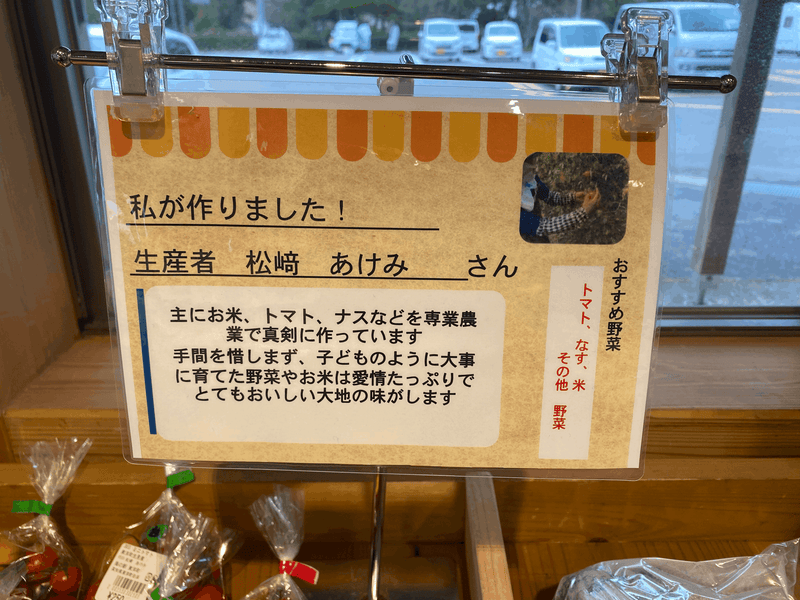 私が作りました！
生産者　松﨑　あけみ　　さん
主にお米、トマト、ナスなどを専業農
業で真剣に作っています
手間を惜しまず、子どものように大事
に育てた野菜やお米は愛情たっぷりで
とてもおいしい大地の味がします
おすすめ野菜
トマト、なす、米
その他　野菜